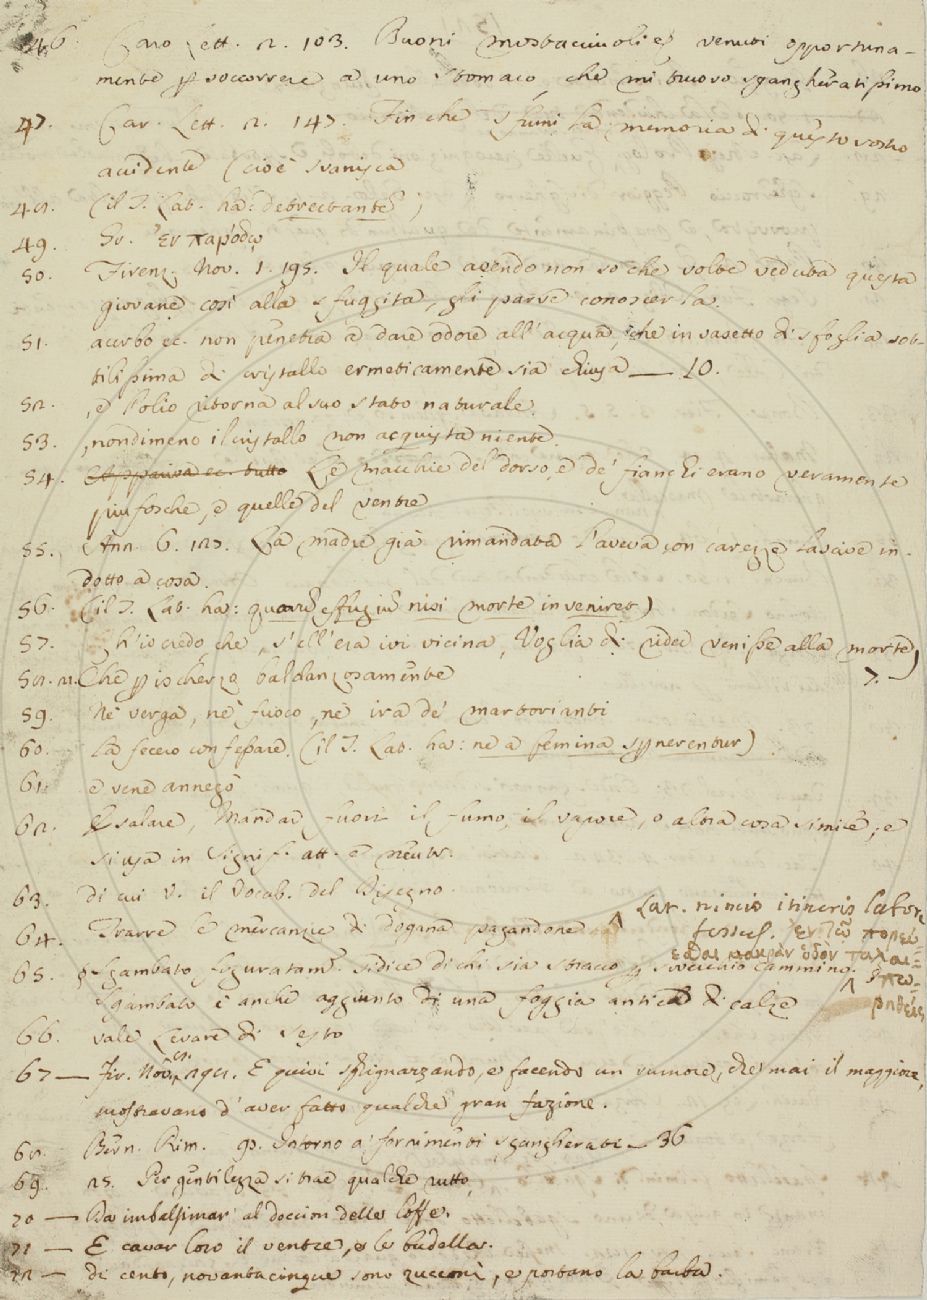 46. Caro Lett. 2. 103. Buoni mostacciuoli, e venuti opportuna-
mente p soccorrere a uno stomaco, che mi truovo sgangheratissimo
47. Car. Lett. 2. 147. Finche sfumi la memoria di questo vostro
accidente (cioè svanisca
48. (il T. Lat. ha: detrectante)
49. Gr. ἐν παρόδῳ
50. Firenz. Nov. 1. 195. Il quale avendo non so che volte veduta questa
giovane così alla sfuggita, gli parve conoscerla.
51. acerbo ec. non penetra a dare odore all'acqua, che in vasetto di sfoglia sot-
tilissima di cristallo ermeticamente sia chiusa — 10.
52. , e l'olio ritorna al suo stato naturale.
53. , nondimeno il cristallo non acquista niente.
54. Le macchie del dorso, e de' fianchi erano veramente
piu fosche, e quelle del ventre
55. Ann. 6. 127. La madre già rimandata l'aveva con carezze lascive in-
dotto a cosa.
56. (il T. Lat. ha: effugiũ nisi morte inveniret)
57. Ch'io credo, che, s'ell'era ivi vicina, Voglia di rider venisse alla morte)
58. 2. Che p ischerzo baldanzosamente 7.
59. Nè verga, nè fuoco, nè ira de' martorianti
60. La fecero confessare. (il T. Lat. ha: ne a femina spnerentur)
61. e vene annegò
62. Esalare, Mandar fuori il fumo, il vapore, o altra cosa simile; e
si usa in signif. att. e neutr.
63. di cui V. il Vocab. del Disegno.
64. Trarre le mercanzie di dogana pagandone ^ Lat. nimio itineris labore
fessus. ἐν τῷ πορεύ-
εσθαι μακρὰν ὁδὸν ταλαι-
65. Sgambato figuratam. si dice di chi sia stracco p soverchio cammino. ^ πω-
ρηθείς
Sgambato è anche aggiunto di una foggia antica di calze
66. vale Levare di sesto
67 — Fir. Nov. E quivi sghignazzando, e facendo un rumore, che mai il maggiore,
mostravano d'aver fatto qualche gran fazione.
68. Bern. Rim. 90. Intorno a' fornimenti sgangherati — 36
69. 25. Per gentilezza si trae qualche rutto,
70 — Da imbalsimar' al doccion delle loffe.
71 — E cavar loro il ventre, e le budella.
72 — di cento, novantacinque sono zucconi, e portano la barba.